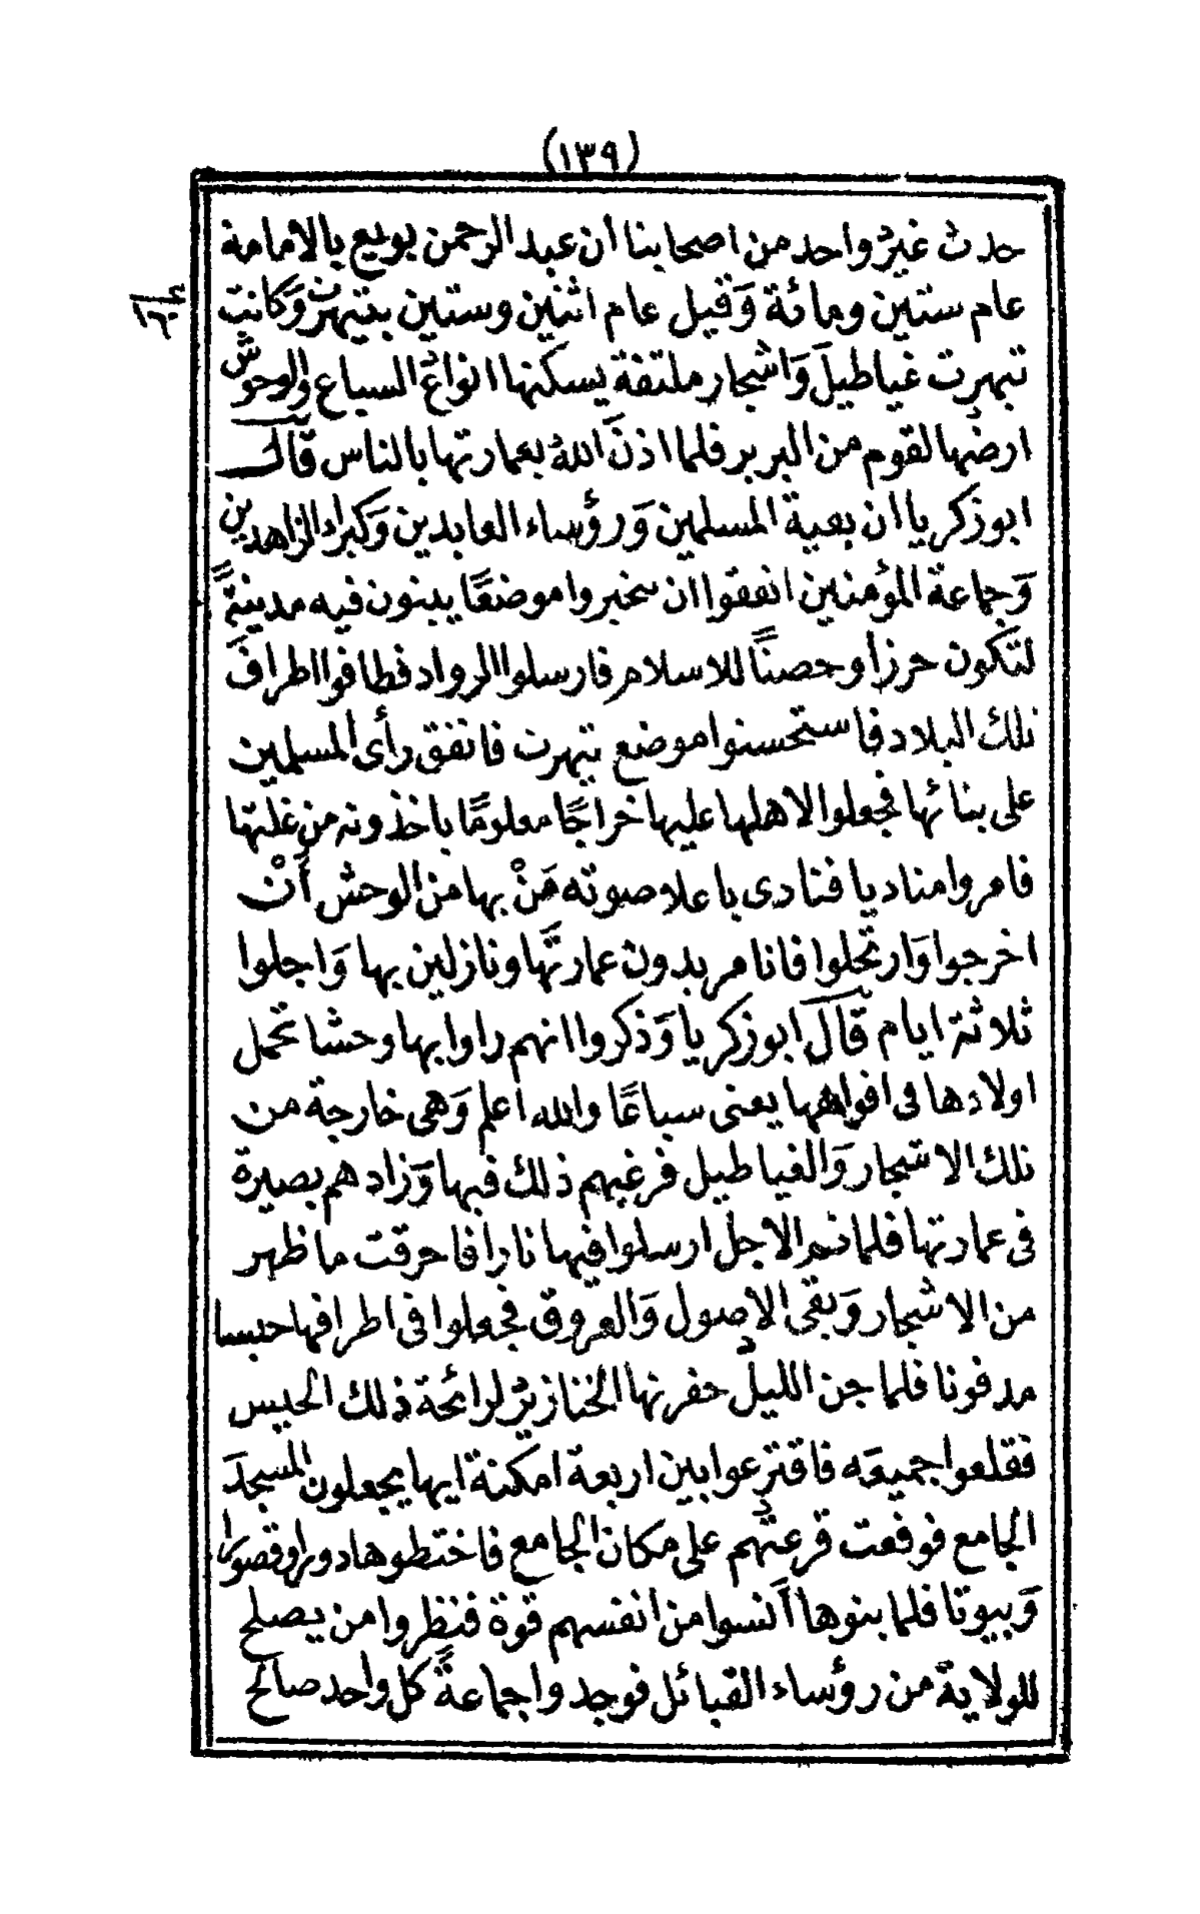 (١٣٩)
حدث غيرُ واحد من اصحابنا ان عبد الرحمن بويع بالامامة
عام ستين ومائة وَقيل عام اثنين وستين بتيهرت وَكانت
١٦٠
تيهرت غياطيلَ وَاشجار ملتفة يسكنها انواعُ السباع والوحوش
ارضها لقوم من البربر فلما اذنَ اللهُ بعمارتها بالناس قالـ
ابو زكريا ان بعية المسلمين وَرؤساء العابدين وَكبراء الزاهدين
وَجماعة المؤمنين اتفقوا ان يتخيروا موضعًا يبنون فيه مدينةً
لتكون حرزا وحصنًا للاسلام فارسلوا الرواد فطافوا اطرافَ
تلك البلاد فاستحسنوا موضع تيهرت فاتفق رأى المسلمين
على بنائها فجعلوا لاهلها عليها خراجًا معلومًا ياخذونه من غلتها
فامروا مناديا فنادى باعلا صوته مَنْ بها من الوحش أَنْ
اخرجوا وَارتحلوا فانا مريدون عمارتَها ونازلين بها وَاجلوا
ثلاثة ايام قَالَ ابو زكريا وَذكروا انهم راوا بها وحشا تحمل
اولادها فى افواهها يعنى سباعًا والله اعلم وَهى خارجة من
تلك الاشجار وَالغياطيل فرغبهم ذلك فيها وَزادهم بصيرة
فى عمارتها فلما تم الاجل ارسلوا فيها نارا فاحرقت ما ظهر
من الاشجار وَبقى الاصول وَالعروق فجعلوا فى اطرافها حيسا
مدفونا فلما جن الليلُ حفرتها الخنازيرُ لرائحة ذلك الحيس
فقلعوا جميعَه فاقترعوا بين اربعة امكنة ايها يجعلون المسجدَ
الجامع فوقعت قرعتُهم على مكان الجامع فاختطوها دورا وقصورا
وَبيوتا فلما بنوها أنسوا من انفسهم قوة فنظروا من يصلح
للولاية من رؤساء القبائل فوجدوا جماعةً كل واحد صالح